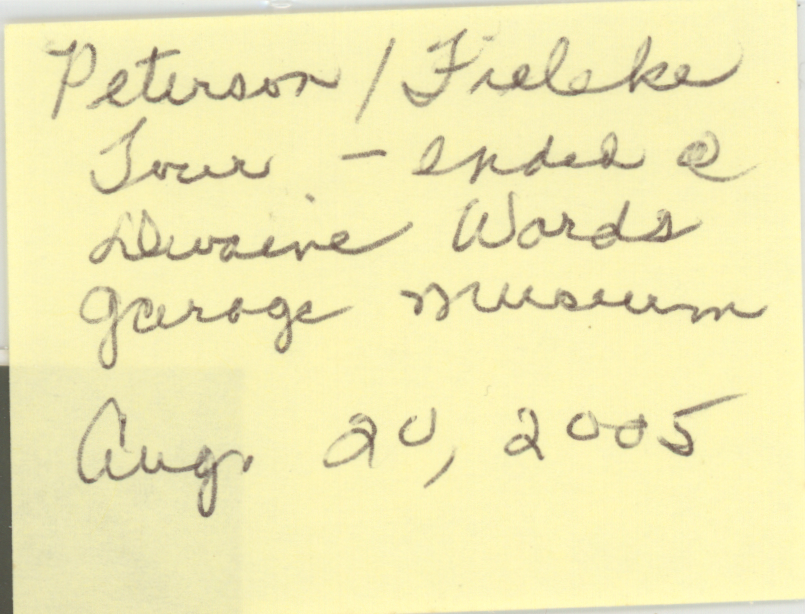 Peterson / Fieleke
Tour - ended @
Dwaine Wards
garage museum
Aug. 20, 2005